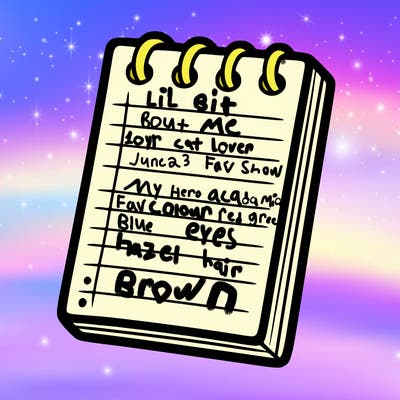 LiL Bit
Bout Me
10yr cat lover
June23 Fav Show
My Hero acadamia
Fav colour red green
Blue eyes
hazel hair
Brown